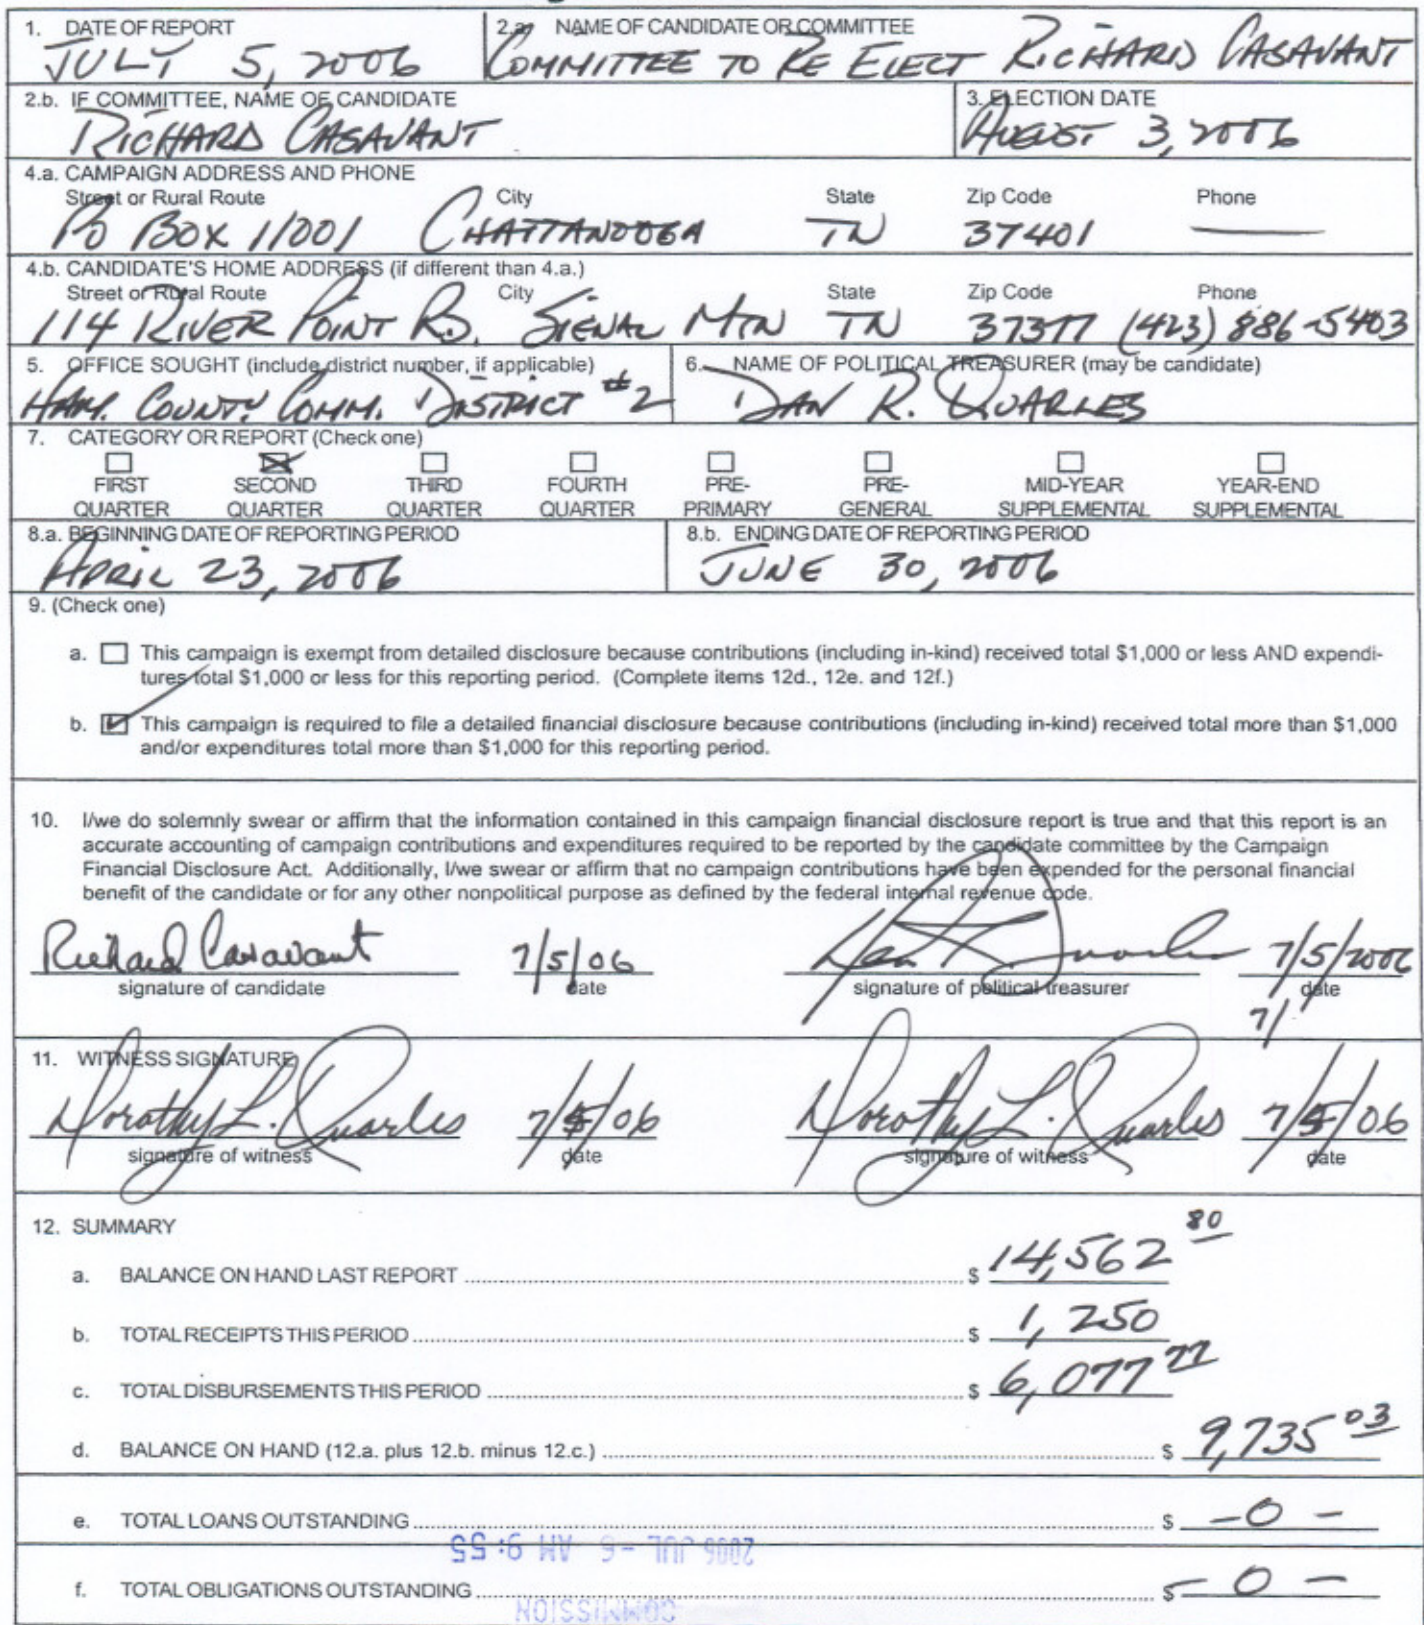 1. DATE OF REPORT
JULY 5, 2006
2.a. NAME OF CANDIDATE OR COMMITTEE
COMMITTEE TO RE ELECT RICHARD CASAVANT
2.b. IF COMMITTEE, NAME OF CANDIDATE
RICHARD CASAVANT
3. ELECTION DATE
AUGUST 3, 2006
4.a. CAMPAIGN ADDRESS AND PHONE
Street or Rural Route City State Zip Code Phone
PO BOX 11001 CHATTANOOGA TN 37401 —
4.b. CANDIDATE'S HOME ADDRESS (if different than 4.a.)
Street or Rural Route City State Zip Code Phone
114 RIVER POINT RD. SIGNAL MTN TN 37377 (423) 886-5403
5. OFFICE SOUGHT (include district number, if applicable)
HAM. COUNTY COMM. DISTRICT #2
6. NAME OF POLITICAL TREASURER (may be candidate)
DAN R. QUARLES
7. CATEGORY OR REPORT (Check one)
FIRST SECOND THIRD FOURTH PRE- PRE- MID-YEAR YEAR-END
QUARTER QUARTER QUARTER QUARTER PRIMARY GENERAL SUPPLEMENTAL SUPPLEMENTAL
8.a. BEGINNING DATE OF REPORTING PERIOD
APRIL 23, 2006
8.b. ENDING DATE OF REPORTING PERIOD
JUNE 30, 2006
9. (Check one)
a. This campaign is exempt from detailed disclosure because contributions (including in-kind) received total $1,000 or less AND expendi-
tures total $1,000 or less for this reporting period. (Complete items 12d., 12e. and 12f.)
b. This campaign is required to file a detailed financial disclosure because contributions (including in-kind) received total more than $1,000
and/or expenditures total more than $1,000 for this reporting period.
10. I/we do solemnly swear or affirm that the information contained in this campaign financial disclosure report is true and that this report is an
accurate accounting of campaign contributions and expenditures required to be reported by the candidate committee by the Campaign
Financial Disclosure Act. Additionally, I/we swear or affirm that no campaign contributions have been expended for the personal financial
benefit of the candidate or for any other nonpolitical purpose as defined by the federal internal revenue code.
Richard Casavant 7/5/06 Dan R. Quarles 7/5/2006
signature of candidate date signature of political treasurer date
7/
11. WITNESS SIGNATURE
Dorothy L. Quarles 7/5/06 Dorothy L. Quarles 7/5/06
signature of witness date signature of witness date
12. SUMMARY
a. BALANCE ON HAND LAST REPORT $ 14,562 80
b. TOTAL RECEIPTS THIS PERIOD $ 1,250
c. TOTAL DISBURSEMENTS THIS PERIOD $ 6,077 77
d. BALANCE ON HAND (12.a. plus 12.b. minus 12.c.) $ 9,735 03
e. TOTAL LOANS OUTSTANDING $ -0-
2006 JUL -6 AM 9:55
f. TOTAL OBLIGATIONS OUTSTANDING $ -0-
COMMISSION